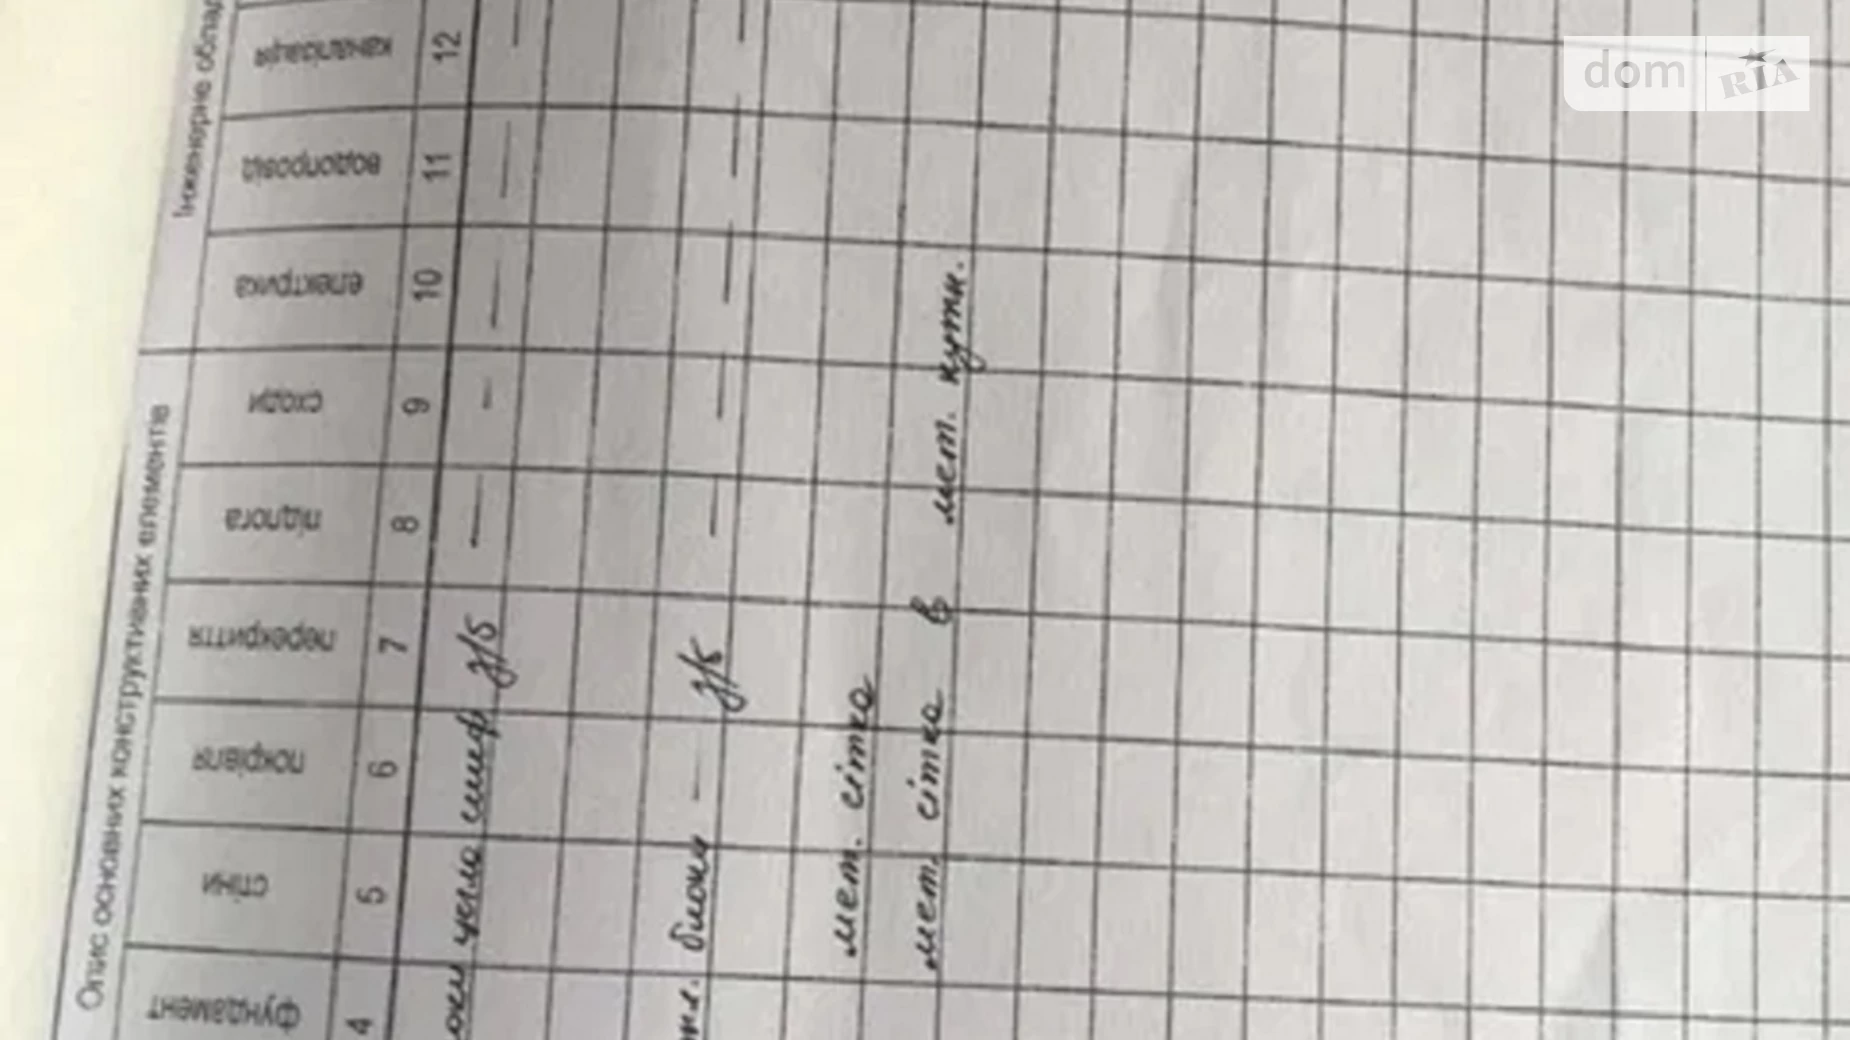 Опис основних конструктивних елементів
Інженерне облад
фундамент
стіни
покрівля
перекриття
підлога
сходи
електрика
водопровід
каналізація
4 5 6 7 8 9 10 11 12
цегла шиф з/б — - — — —
блоки — з/б — — — — —
мет. сітка
мет. сітка в мет. кутн.
dom RIA